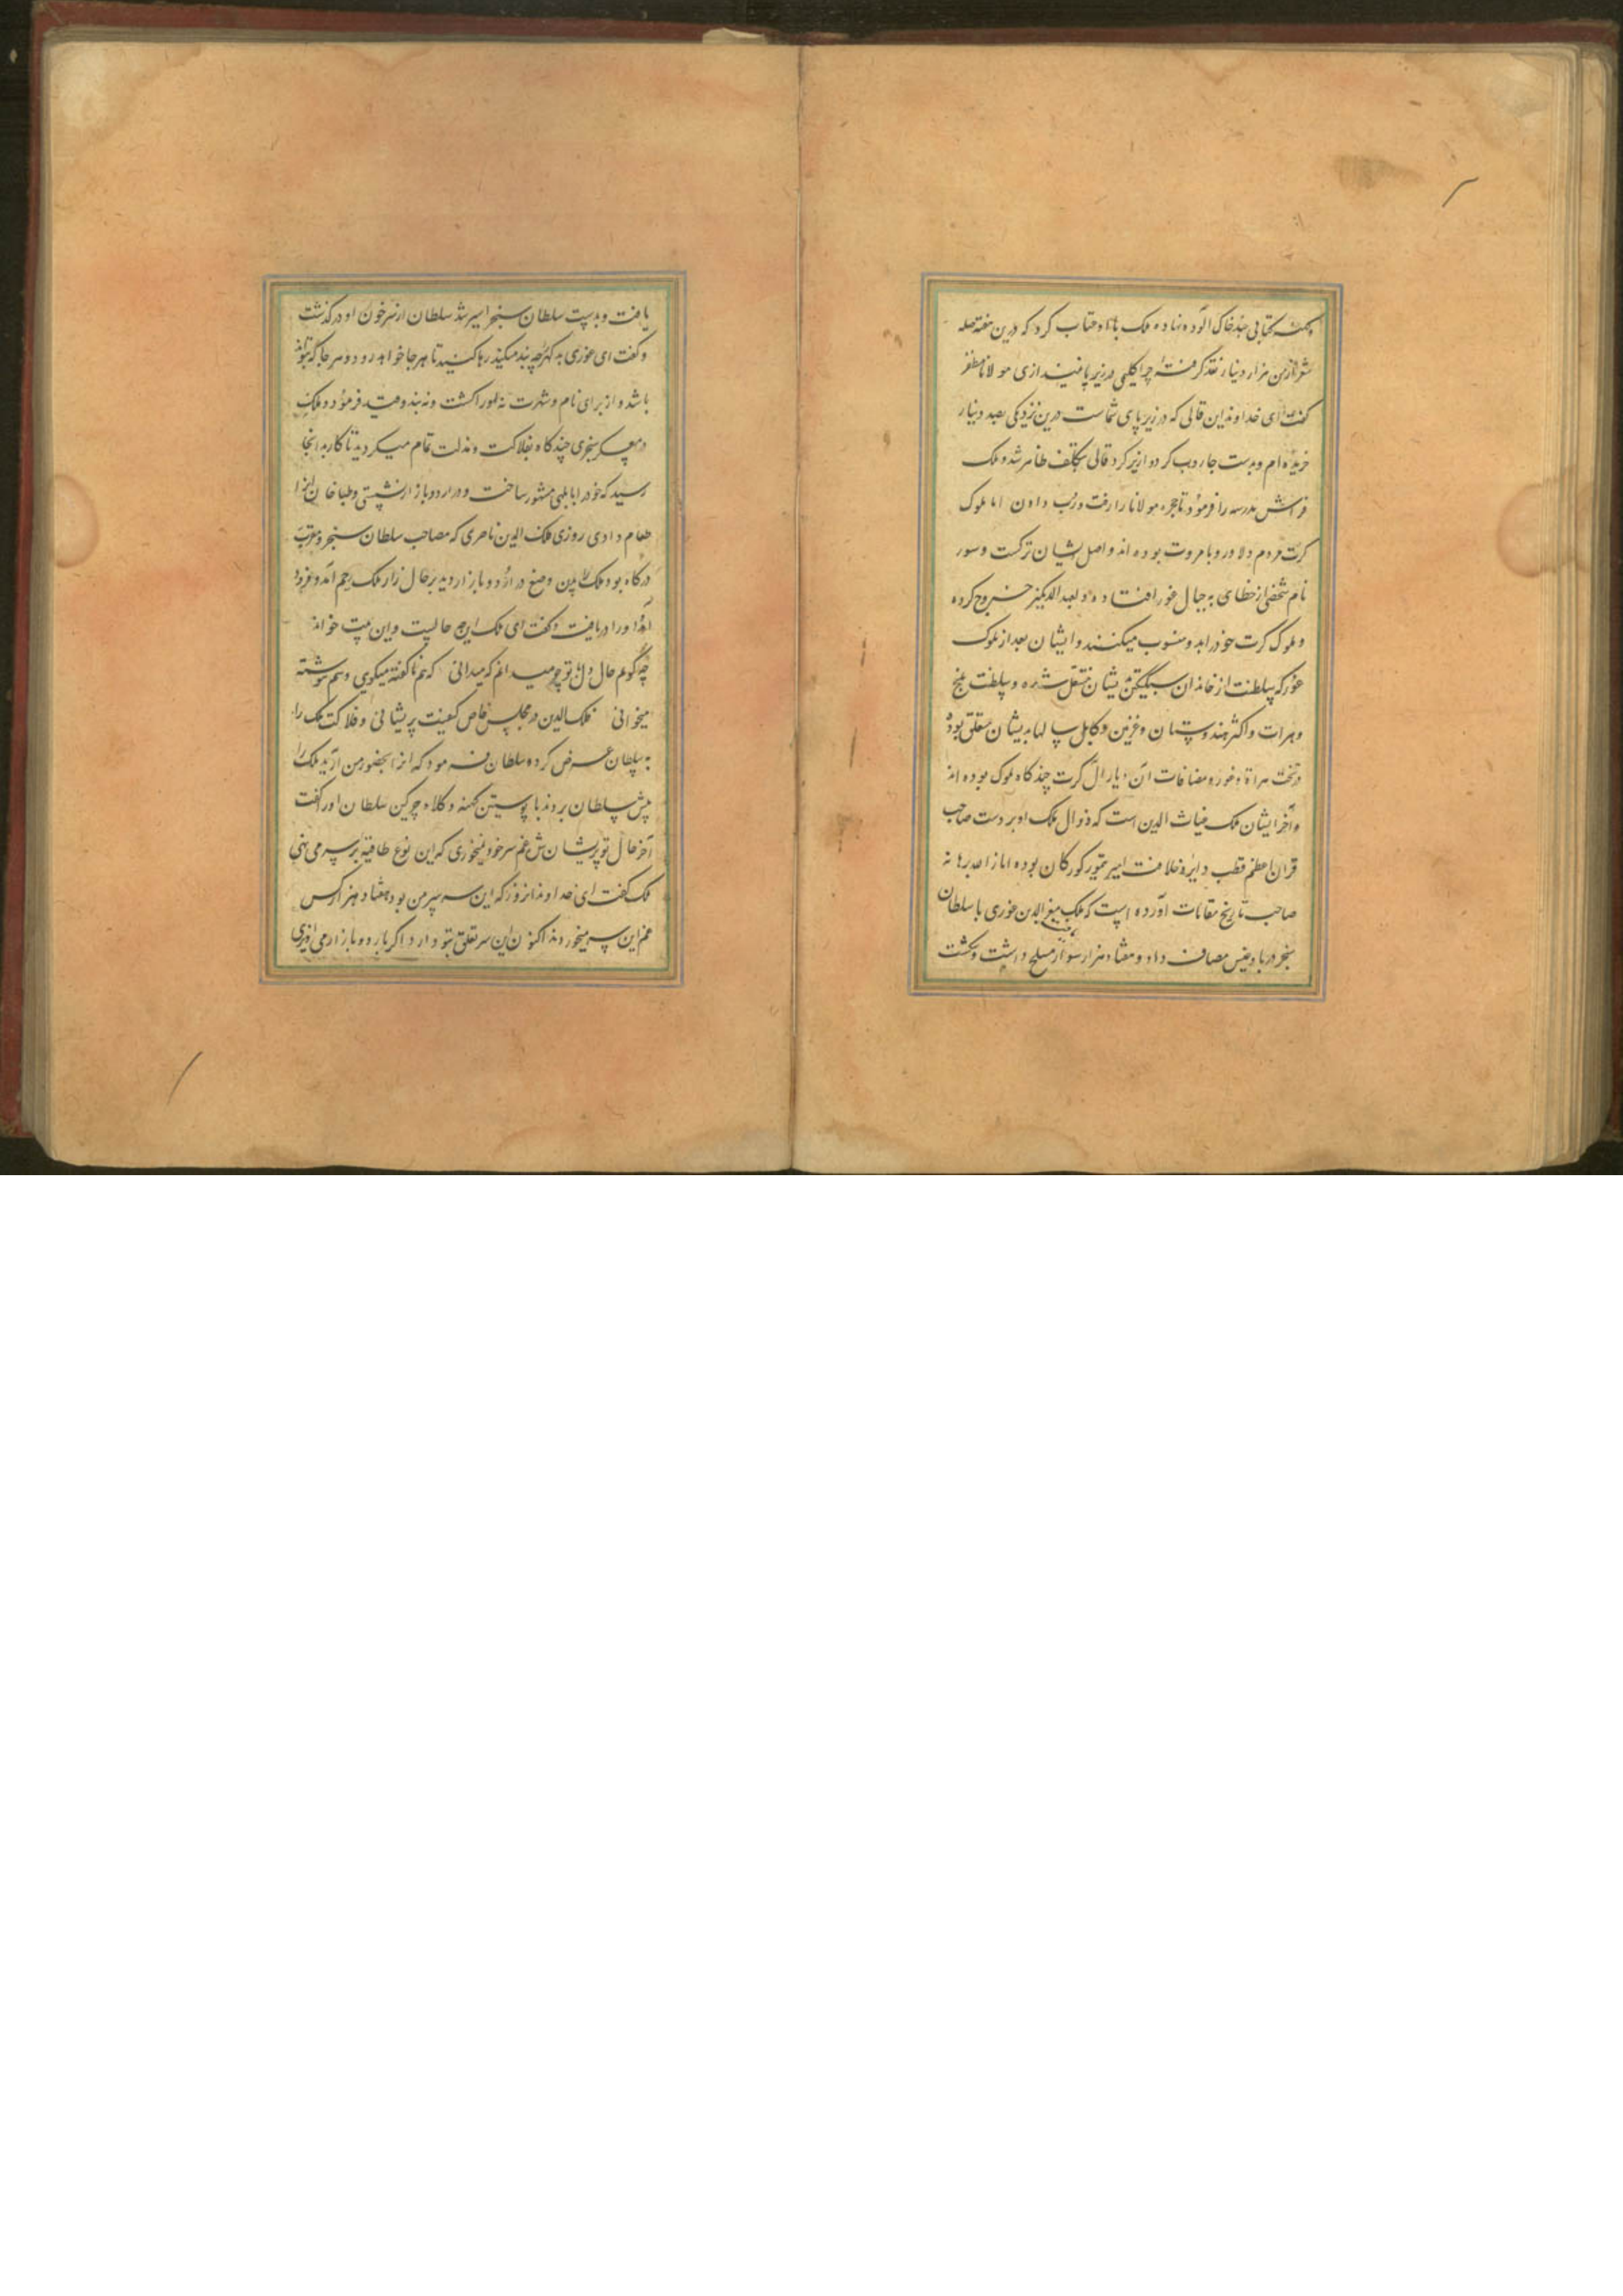 و کتابی چند خاک آلوده نهاده ملک با او عتاب کرد که درین هفته صله
شعر از من هزار دینار نقد گرفته چرا گلیمی در زیر پا نیندازی مولانا مظفر
گفت ای خداوند این قالی که در زیر پای شماست درین نزدیکی بصد دینار
خریده‌ام و بدست جاروب کرد و از زیر گرد قالی تکلف ظاهر شد و ملک
فراش مدرسه را فرمود تا حجره مولانا را رفت و رب دادن اما ملوک
کرت مردم دلاور و با مروت بوده‌اند و اصل ایشان ترکست و سور
نام شخصی از خطای به جبال غور افتاده و لعبدالدیکیز خروج کرده
و ملوک کرت خود را بدو منسوب میکنند و ایشان بعد از ملوک
غور که سلطنت از خاندان سبکتکین بایشان منتقل شده و سلطنت بلخ
و هرات و اکثر هندوستان و غزنین و کابل سالها بدیشان متعلق بوده
در تخت هراة و غور و مضافات آن دیار آل کرت چندگاه ملوک بوده‌اند
و آخر ایشان ملک غیاث الدین است که زوال ملک او بر دست صاحب
قران اعظم قطب دایره خلافت امیر تیمور کورکان بوده انار الله برهانه
صاحب تاریخ مقامات آورده است که ملک معز الدین غوری با سلطان
سنجر در بادغیس مصاف داد و هفتاد هزار سوار مسلح داشت و شکست
یافت و بدست سلطان سنجر اسیر شد سلطان از سر خون او درگذشت
و گفت ای غوری بد گهر چه بند میکنید رها کنید تا هر جا خواهد رود و هر جا که تواند
باشد و از برای نام و شهرت نه او را کشت و نه بند و قید فرمود و ملک
در معسکر سنجری چندگاه بفلاکت و مذلت تمام میگردید تا کار بدانجا
رسید که خود را بابلهی مشهور ساخت و در اردو بازار نشستی و طباخان او را
طعام دادی روزی فلک الدین ناصری که مصاحب سلطان سنجر و مقرب
درگاه بود ملک را بدین وضع در اردو بازار دید بر حال زار ملک رحم آمد و فرود
آمد او را دریافت و گفت ای ملک این چه حالیست و این بیت خواند
چه گویم حال دل با تو چو میدانم که میدانی که هم ناگفته میگویی و هم ننوشته
میخوانی فلک الدین در مجلس خاص کیفیت پریشانی و فلاکت ملک را
به سلطان عرض کرده سلطان فرمود که او را بحضور من آرید ملک را
پیش سلطان بردند با پوستین کهنه و کلاه چرکین سلطان او را گفت
آخر حال تو پریشان شد غم سر خود نمیخوری که این نوع طاقیه بر سر می نهی
ملک گفت ای خداوند آنروز که این سر سر من بود هفتاد هزار کس
غم این سر میخوردند اکنون این سر تعلق بتو دارد اگر بار دو بازار می آویزی